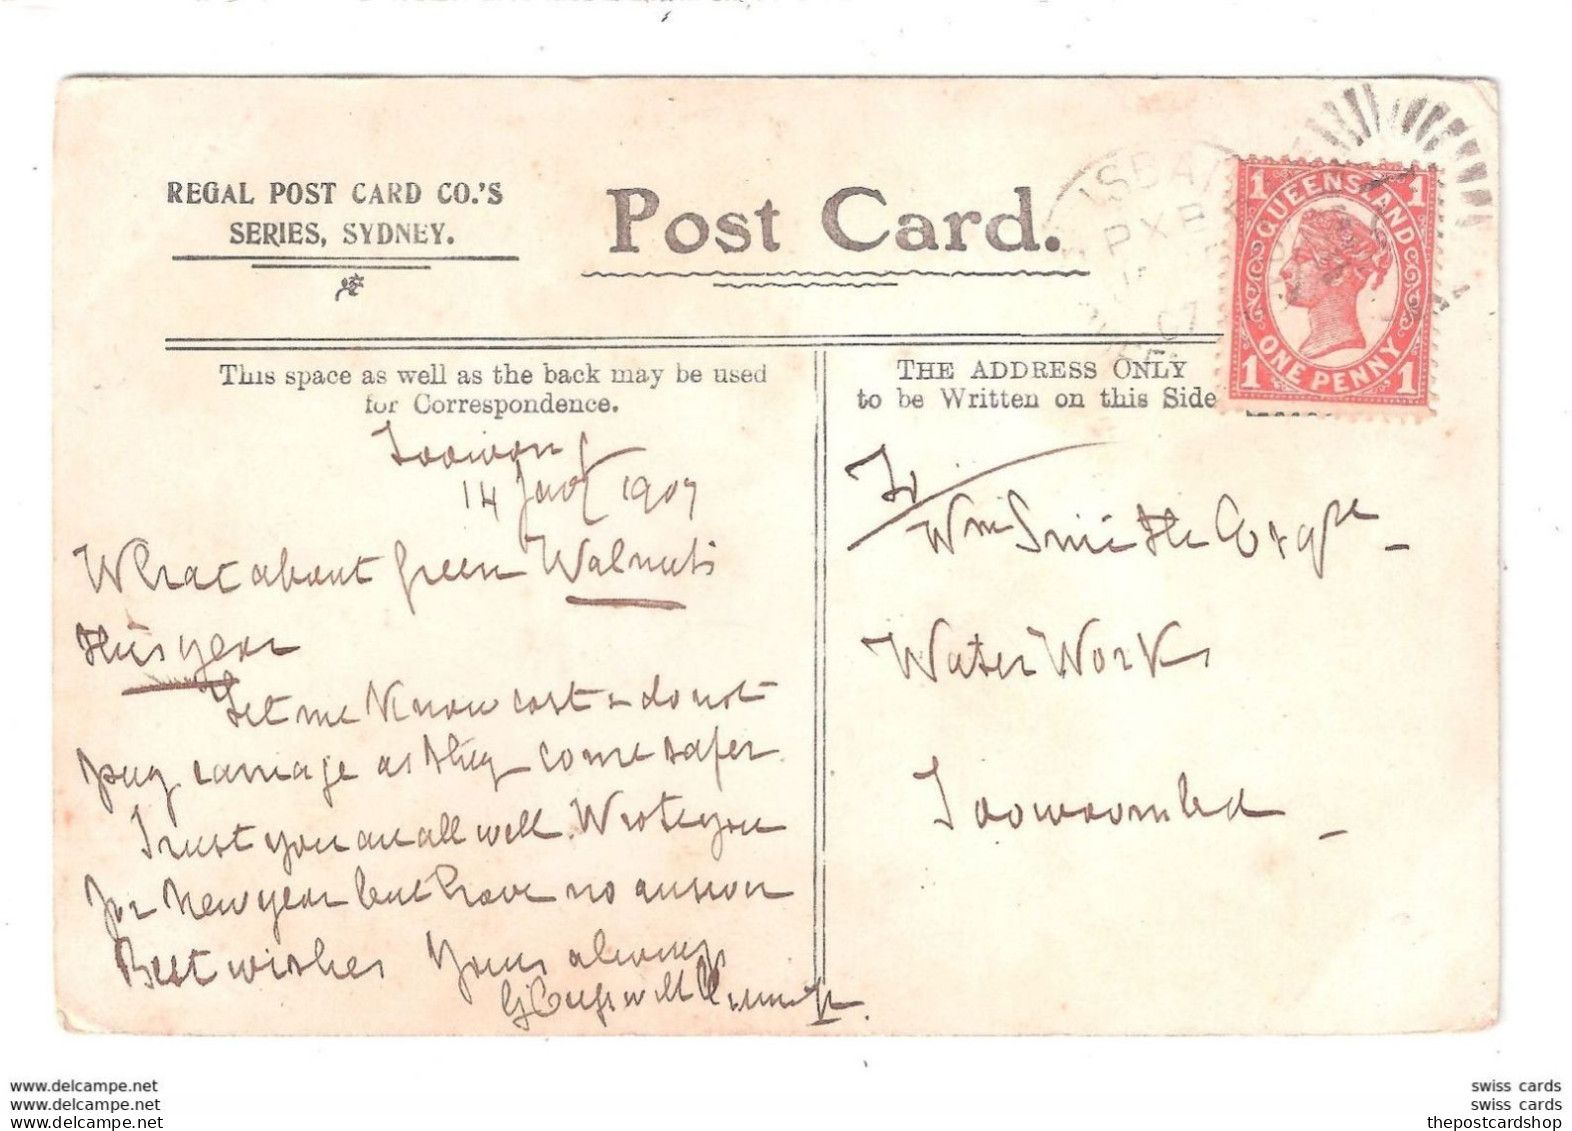 REGAL POST CARD CO.'S
SERIES, SYDNEY.
Post Card.
QUEENSLAND
1 1
ONE PENNY
1 1
This space as well as the back may be used
for Correspondence.
THE ADDRESS ONLY
to be Written on this Side
Toowong
14 1907
What about Green Walnuts
this year
Let me Know cost & do not
pay carriage as they come safer
Trust you are all well. Wrote you
for New year but have no answer
Best wishes Yours always
To
Wm Smith Esqre
Water Works
Toowoomba
www.delcampe.net
www.delcampe.net
www.delcampe.net
swiss cards
swiss cards
thepostcardshop